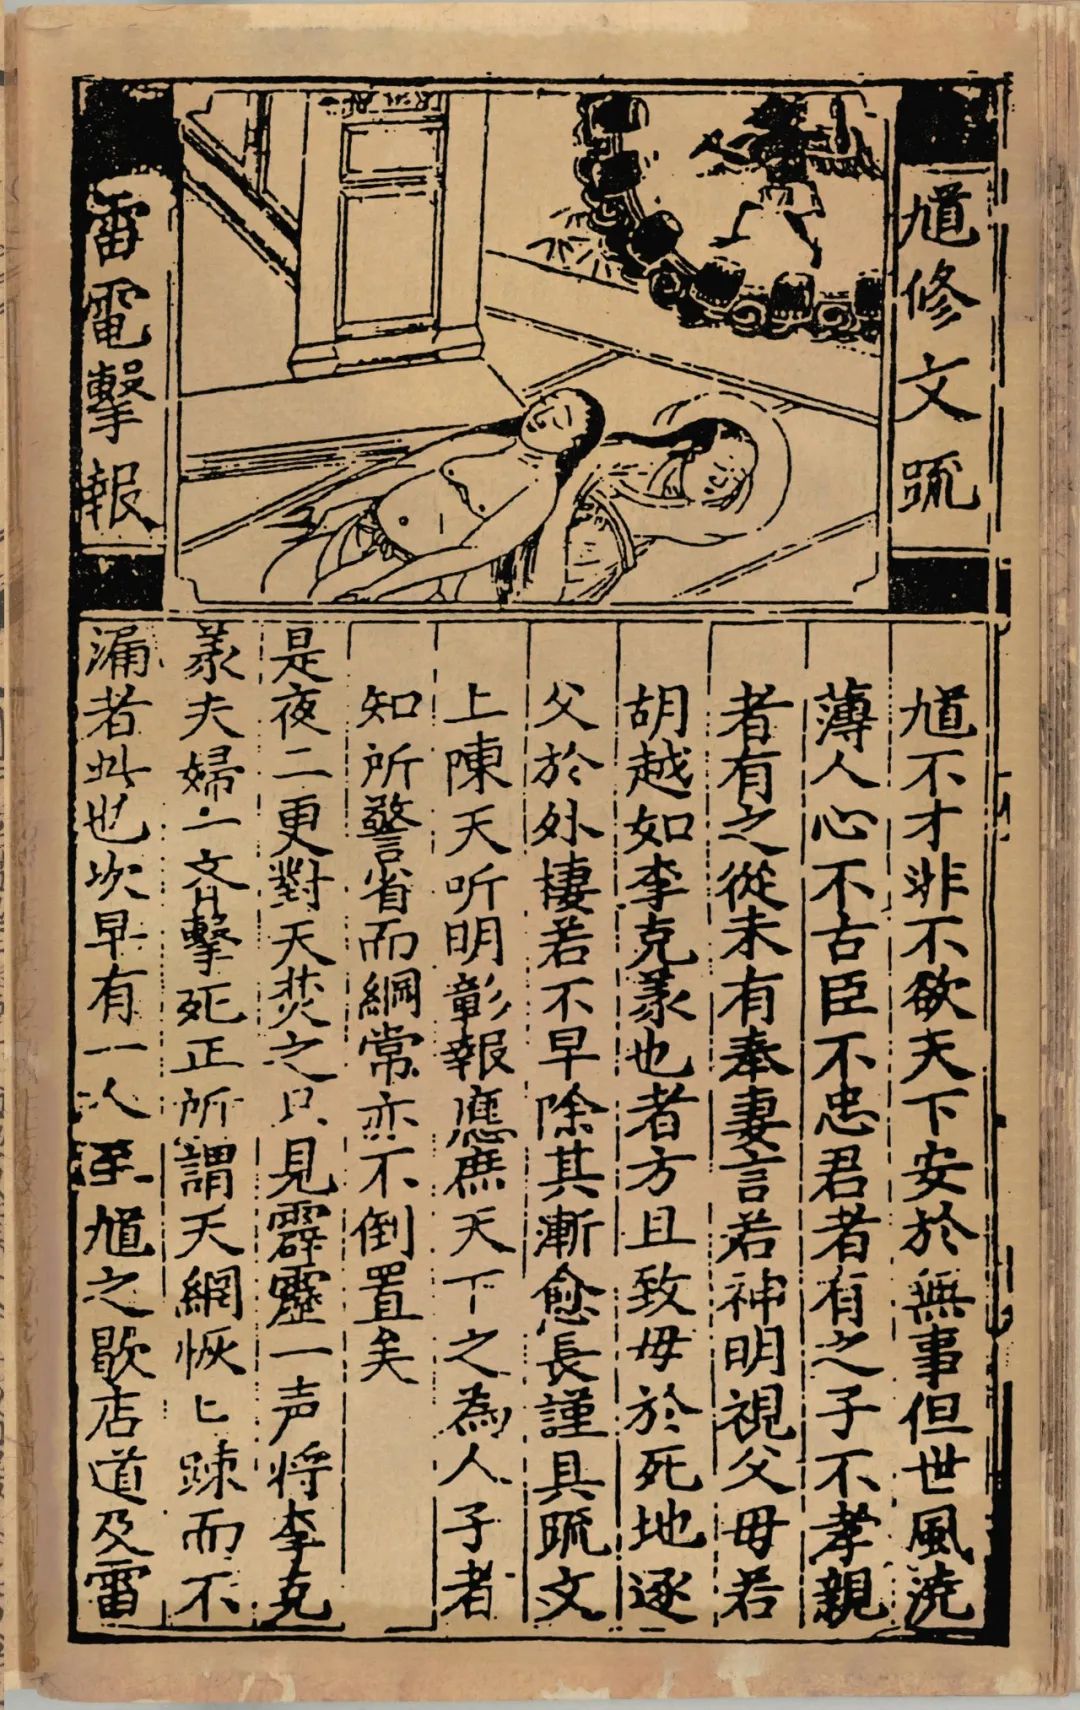 馗修文䟽
雷電擊報
馗不才非不欲天下安於無事但世風澆
薄人心不古臣不忠君者有之子不孝親
者有之從未有奉妻言若神明視父母若
胡越如李克羕也者方且致母於死地逐
父於外棲若不早除其漸愈長謹具䟽文
上陳天听明彰報應庶天下之為人子者
知所警省而綱常亦不倒置矣
是夜二更對天焚之只見霹靂一声将李克
羕夫婦一齐擊死正所謂天網恢〻踈而不
漏者此也次早有一人至馗之歇店道及雷